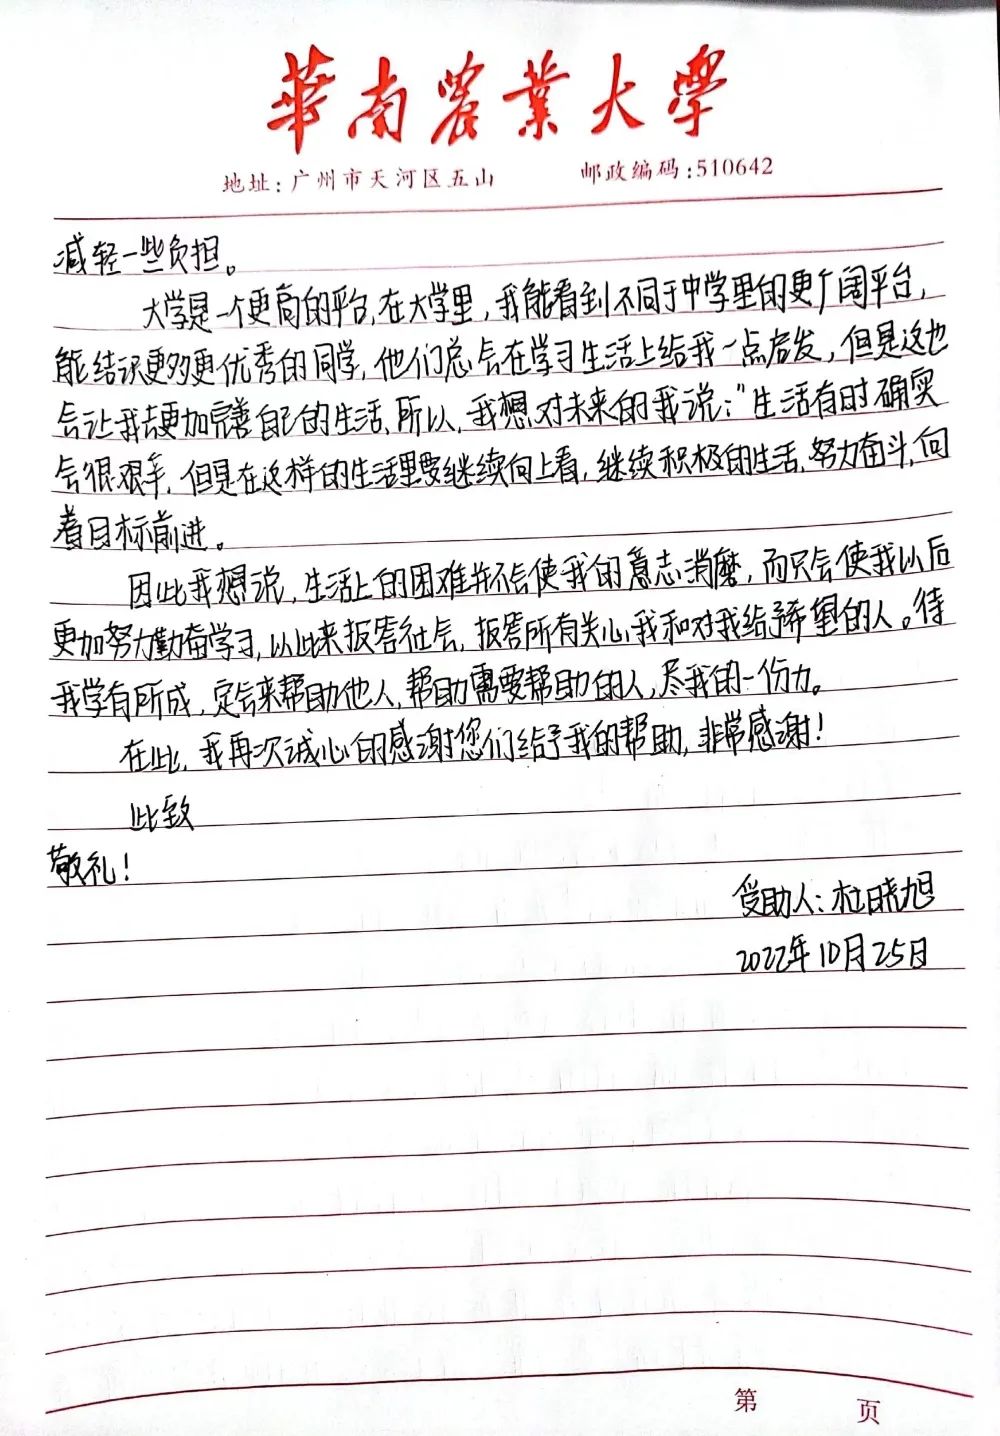 華南農業大學
地址:广州市天河区五山 邮政编码:510642
减轻一些负担。
大学是一个更高的平台,在大学里,我能看到不同于中学里的更广阔平台,
能结识更多更优秀的同学,他们总会在学习生活上给我一点启发,但是这也
会让我去更加完善自己的生活,所以,我想对未来的我说:"生活有时确实
会很艰辛,但是在这样的生活里要继续向上看,继续积极的生活,努力奋斗,向
着目标前进。
因此我想说,生活上的困难并不会使我的意志消磨,而只会使我以后
更加努力勤奋学习,以此来报答社会,报答所有关心我和对我给予希望的人。待
我学有所成,定会来帮助他人,帮助需要帮助的人,尽我的一份力。
在此,我再次诚心的感谢您们给予我的帮助,非常感谢!
此致
敬礼!
受助人:杜晓旭
2022年10月25日
第 页